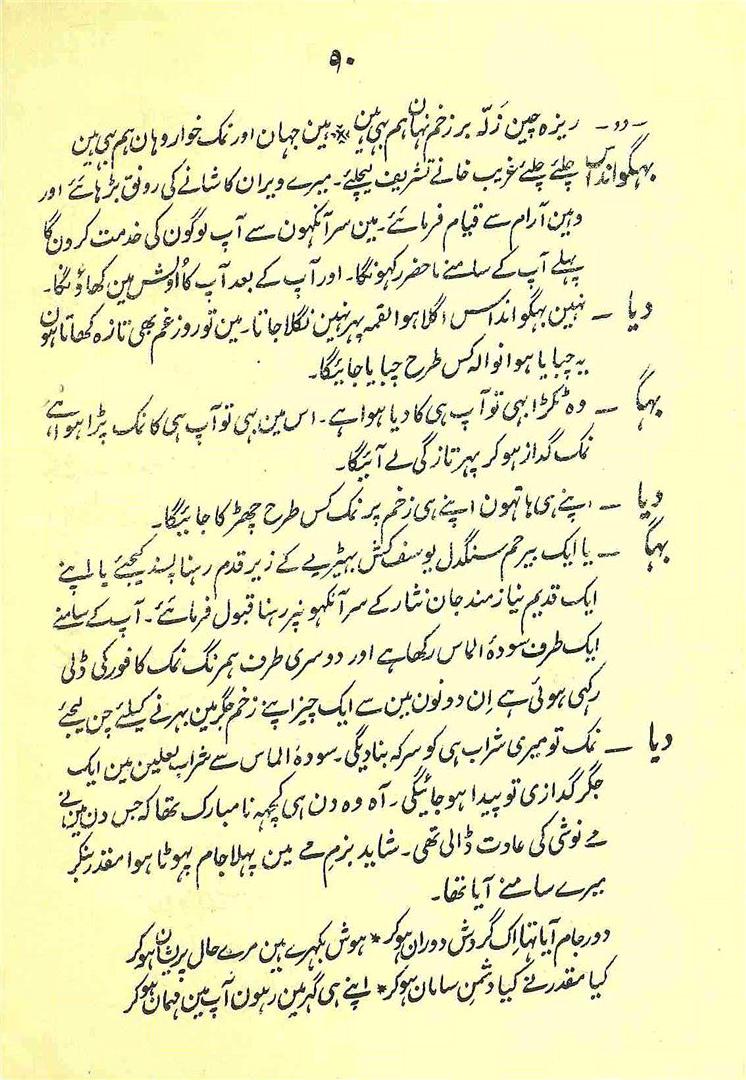 ۹۰
- دو - ریزہ چین زَلّہ بر زخم نہان ہم ہی ہین * ہین جہان اور نمک خوار وہان ہم ہی ہین
بہگوانداس چلئے چلئے غریب خانے تشریف لیچلئے ۔ میرے ویران کاشانے کی رونق بڑہائے اور
وہین آرام سے قیام فرمائے ۔ مین سر آنکہون سے آپ لوگون کی خدمت کرون گا
پہلے آپ کے سامنے ماحضر رکہونگا ۔ اور آپ کے بعد آپ کا اُولش مین کھاؤنگا ۔
دیا ـ نہین بہگوانداس اگلا ہوا لقمہ پہر نہین نگلا جاتا ۔ مین تو روز غم بھی تازہ کھاتا ہون
یہ چبایا ہوا نوالہ کس طرح چبایا جائیگا ۔
بہگا ـ وہ ٹکڑا بہی تو آپ ہی کا دیا ہوا ہے ۔ اس مین بہی تو آپ ہی کا نمک پڑا ہوا ہے
نمک گداز ہو کر پہر تازگی لے آئیگا ۔
دیا ـ اپنے ہی ہاتہون اپنے ہی زخم پر نمک کس طرح چھڑکا جائیگا ۔
بہگا ـ یا ایک بیرحم سنگدل یوسف کش بہیڑیے کے زیر قدم رہنا پسند کیجئے یا اپنے
ایک قدیم نیاز مند جان نثار کے سر آنکہونپر رہنا قبول فرمائے ۔ آپ کے سامنے
ایک طرف سودۂ الماس رکھا ہے اور دوسری طرف ہمرنگ نمک کافور کی ڈلی
رکہی ہوئی ہے اِن دونون مین سے ایک چیز اپنے زخم جگر مین بہرنے کیلئے چن لیجئے
دیا ـ نمک تو میری شراب ہی کو سرکہ بنا دیگی ۔ سودۂ الماس سے شراب لعلین مین ایک
جگر گدازی تو پیدا ہو جائیگی ۔ آہ وہ دن ہی کچہہ نا مبارک تھا کہ جس دن مین نے
مے نوشی کی عادت ڈالی تھی ۔ شاید بزم مے مین پہلا جام پہوٹا ہوا مقدر بنکر
میرے سامنے آیا تھا ۔
دور جام آیا تہا اِک گردش دوران ہو کر * ہوش بکہرے ہین مرے حال پریشان ہو کر
کیا مقدر نے کیا دشمنِ سامان ہو کر * اپنے ہی گہر مین رہون آپ مین مہمان ہو کر